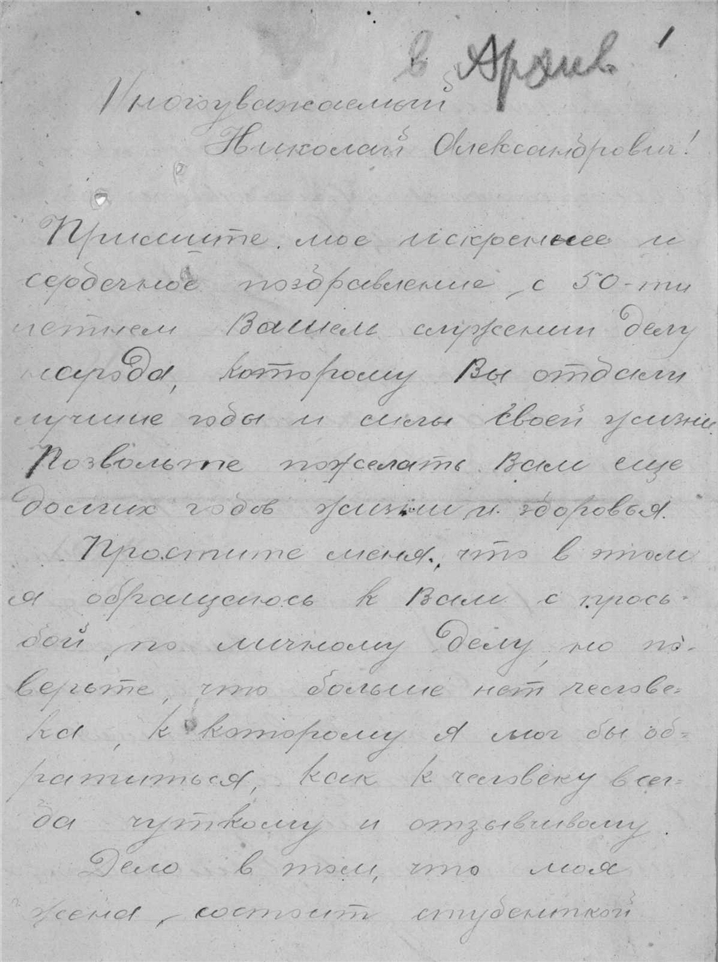 в Архив !
Многоуважаемый
Николай Александрович!
Примите, мое искреннее и
сердечное поздравление, с 50-ти
летнем Вашем служении делу
народа, которому Вы отдали
лучшие годы и силы своей жизни.
Позвольте пожелать Вам еще
долгих годов жизни и здоровья.
Простите меня, что в этом
я обращаюсь к Вам с прось-
бой, по личному делу, но по-
верьте, что больше нет челове-
ка, к которому я мог бы об-
ратиться, как к человеку всег-
да чуткому и отзывчивому.
Дело в том, что моя
жена, состоит студенткой